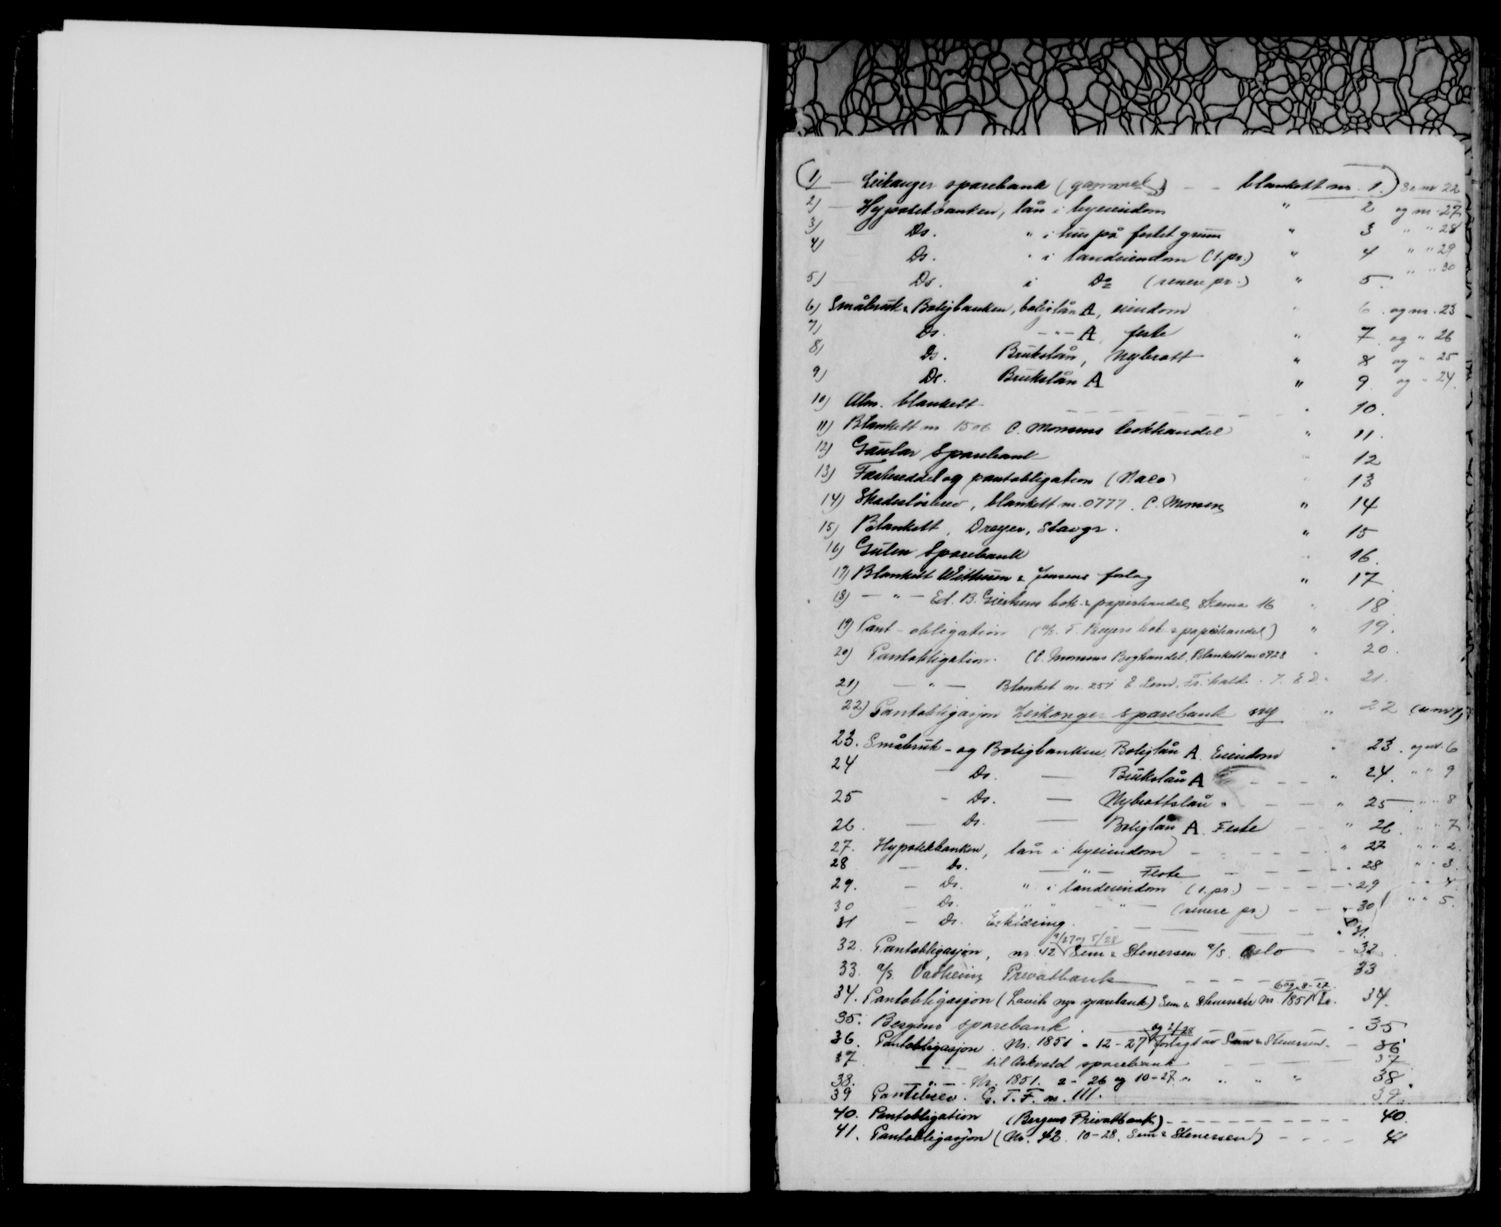 1) — Leikanger sparebank (gammel) — — blankett nr. 1.) Se nr 22
2) — Hypotekbanken, lån i byeiendom " 2 og nr. 27
3) Do. " i hus på festet grunn " 3 " " 28
4) — Do. " i landeiendom (1. pr.) " 4 " " 29
5) — Do. i Do (senere pr.) " 5. " " 30
6) Småbruk & Boligbanken, boliglån A, eiendom " 6 og nr. 23
7) Do. — " — A feste " 7 og " 26
8) Do. Brukslån, Nybrott " 8 og " 25
9) Do. Brukslån A " 9. og " 24.
10) Alm. blankett " 10.
11) Blankett nr 1506 C. Monsens bokhandel " 11.
12) Gaular Sparebank " 12
13) Festeseddel og pantobligation (Naco) " 13
14) Skadesløsbrev, blankett nr. 0777. C. Monsen " 14
15) Blankett, Dreyer, Stavgr. " 15
16) Gulen Sparebank " 16.
17) Blankett Withusen & Jensens forlag " 17
18) — " — Ed. B. Giertsens bok- & papirhandel, skema 16 " 18
19) Pant-obligation (A/s. F. Beyers bok & papirhandel) " 19.
20) Pantobligation. (C. Monsens Boghandel, Blankett nr 0723 " 20.
21) — " — Blanket nr. 251 E. Sem, Fr.hald. 21.
22) Pantobligasjon Leikanger sparebank ny " 22 (se nr 1)
23. Småbruk- og Boligbanken. Boliglån A. Eiendom " 23. og nr. 6
24 — Do. — Brukslån A — — " 24. " " 9
25 - Do. — Nybrottslån " — — " 25 " " 8
26. — Do. — Boliglån A. Feste — " 26 " " 7
27. Hypotekbanken, lån i byeiendom — — " 27 " " 2.
28 — Do. — " — Feste — — — " 28 " " 3.
29. — Do. " i landeiendom (1. pr.) — — — " 29 " " 4
30 — Do. " " — " — (senere pr.) — — " 30 " " 5.
31 — Do. — — — " 31.
32. Pantobligasjon, nr. 42 Sem & Stenersen A/S. Oslo — 32
33. A/s. Vadheim Privatbank — — — — 33
34. Pantobligasjon (Lavik nye sparebank) Sem & Stenersen nr. 1851 6 og 8-27. 34.
35. Bergens sparebank. — — — 35
36. Pantobligasjon. Nr. 1851 - 12-27 og 2/28 forlagt av Sem & Stenersen. — 36
37 — " — til Askvold sparebank — — — 37
38. — " — Nr. 1851. 2-26 og 10-27. " " " " 38.
39 Pantebrev. G.T.F. nr. 111. 39.
40. Pantobligation (Bergens Privatbank) — — — — 40.
41. Pantobligasjon (Nr. 42. 10-28. Sem & Stenersen) — — — 41